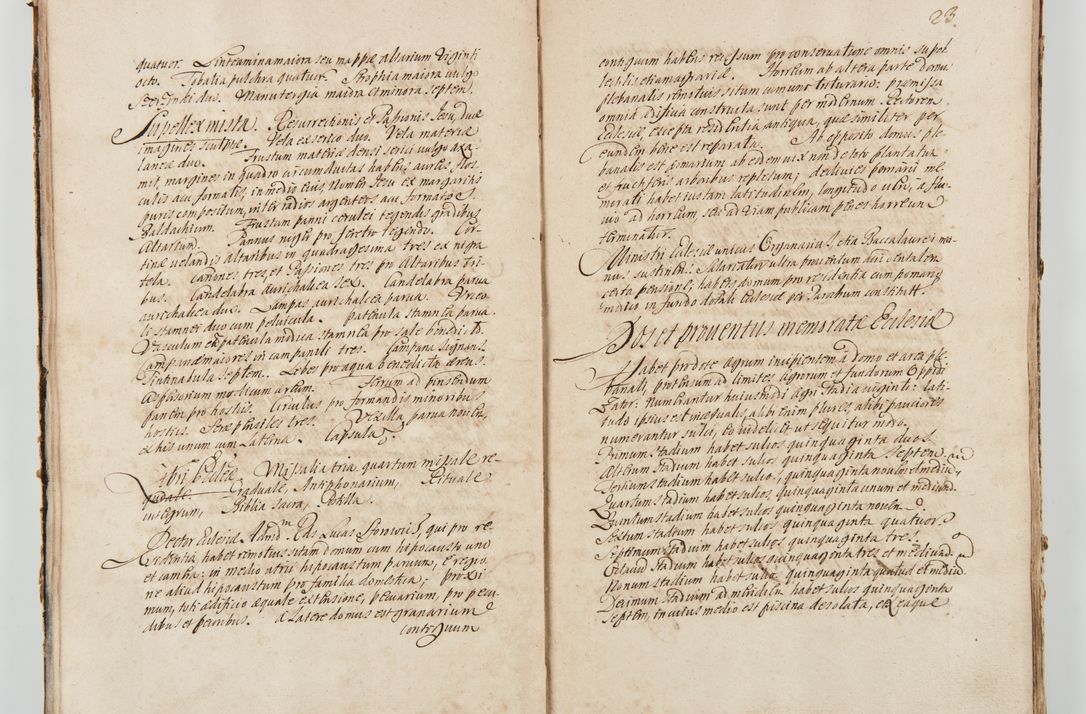 quatuor. Linteamina maiora seu mappæ altarium viginti
octo. Tobalia pulchra quatuor. Strophia maiora vulgo
duo. Manutergia maiora et minora septem.
Supellex mista. Resurrectionis et Passionis Iesu, duæ
imagines sculptæ. Vela ex serico duo. Vela materiæ
laneæ duo. Frustum materiæ densi serici vulgo axa-
mit, margines in quadro circumductas habens aureis flos
culis acu formatis, in medio eius Nomen Iesu ex margaritis
puris compositum, inter radios argenteos acu formatos.
Baldachium. Frustum panni cerulei tegendis gradibus
Altarium. Pannus niger pro feretro tegendo. Cor-
tinæ velandis altaribus in quadragesima tres ex nigra
tela. Canones tres, et Passiones tres pro Altaribus tri-
bus. Candelabra aurichalcea sex. Candelabra parva
aurichalcea duo. Lampas aurichalcea parva. Urceo
li stannei duo cum pelvicula. Patinula stannea parva.
Vasculum et patinula modica stannea pro sale benedicto.
Campanæ maiores in campanili tres. Campana signans.
Tintinabula septem. Lebes pro aqua benedicta æreus.
Aspersorium modicum æreum. Ferrum ad pinsendum
panem pro hostiis. Circulus pro formandis minoribus
hostiis. Scæ tres. Vexilla parva novem,
ex his unum cum Latina. Capsulæ
Libri Ecclesiæ. Missalia tria, quartum missale re-
quiale. Graduale, Antiphonarium, Rituale
integrum, Biblia sacra, Postilla.
Rector Ecclesiæ Admodum Rdus Lucas qui pro re-
sidentia, habet remotius sitam domum cum hipocausto uno
et camera: in medio atrii hipocaustum parvum, è regio
ne aliud hipocaustum pro familia domestica; proxi-
mum, toti ædificio æquale extensione, pecuarium, pro pecu-
dibus et pecoribus. A latere domus est granarium
contiguum

23.
contiguum habens recessum pro conservatione omnis supel-
lectilis etiam agrariæ. Horreum ab altera parte domus
plebanalis remotius situm cum uno triturario: præmissa
omnia ædificia constructa sunt per modernum Rectorem
Ecclesiæ, excepta residentia antiqua, quæ similiter per
eundem bene est reparata. Ab opposito domus ple
banalis est pomarium ab eodem vix non de toto plantatum
et fructiferis arboribus repletum; declivies pomarii me
morati habet iustam latitudinem, longitudo vero, a flu-
vio ad horreum, seu ad viam publicam penes horreum
terminatur.
Ministri Ecclesiæ unicus Organarius, etia Baccalaurei mu-
nus sustinens. Salariatur ultra proventum accidentalem
certa pensione, habens domum pro residentia cum pomario
modico in fundo dotali Ecclesiæ per Parochum constitutam.
Dos et proventus memoratæ Ecclesiæ
Habet pro dote agrum incipientem a domo et area ple
banali, protensum ad limites agrorum et fundorum Oppidi
Zator: numerantur huiusmodi agri stadia viginti: lati-
tudo ipsius est inæqualis, alibi enim plures, alibi pauciores
numerantur sulci, eo videlicet ut sequitur modo.
Primum stadium habet sulcos quinquaginta duos.
Alterum stadium habet sulcos quinquaginta septem.
Tertium stadium habet sulcos, quinquaginta novem et medium,
Quartum stadium habet sulcos, quinquaginta unum et medium.
Quintum stadium habet sulcos quinquaginta novem.
Sextum stadium habet sulcos quinquaginta quatuor.
Septimum stadium habet sulcos quinquaginta tres.
Octavum stadium habet sulcos quinquaginta tres et medium.
Nonum stadium habet sulcos quinquaginta quatuor et medium.
Decimum stadium ad meridiem habet sulcos quinquaginta
septem, in cuius medio est piscina desolata, ex eaque